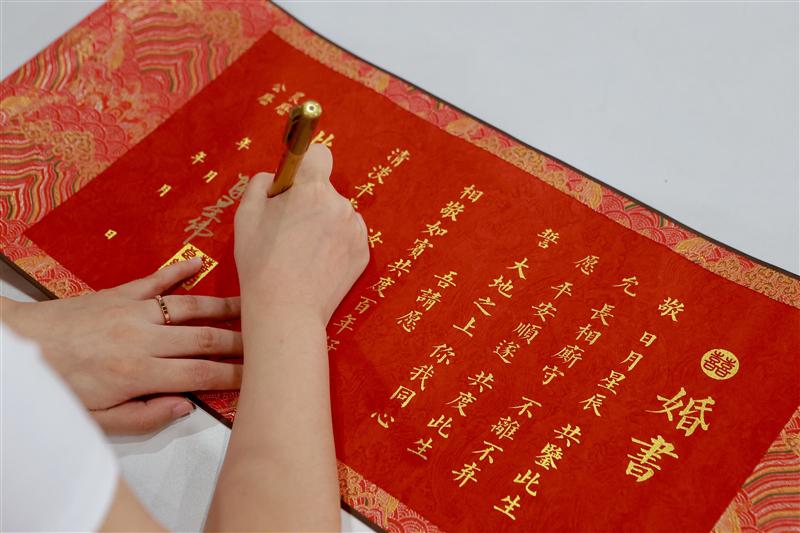 囍
婚書
敬 日月星辰 共鑒此生
允 長相廝守 不離不弃
愿 平安順遂 共度此生
誓 大地之上 你我同心
吾請愿
相敬如賓共度百年好
汝
清波平
年 月
公曆 年 月 日